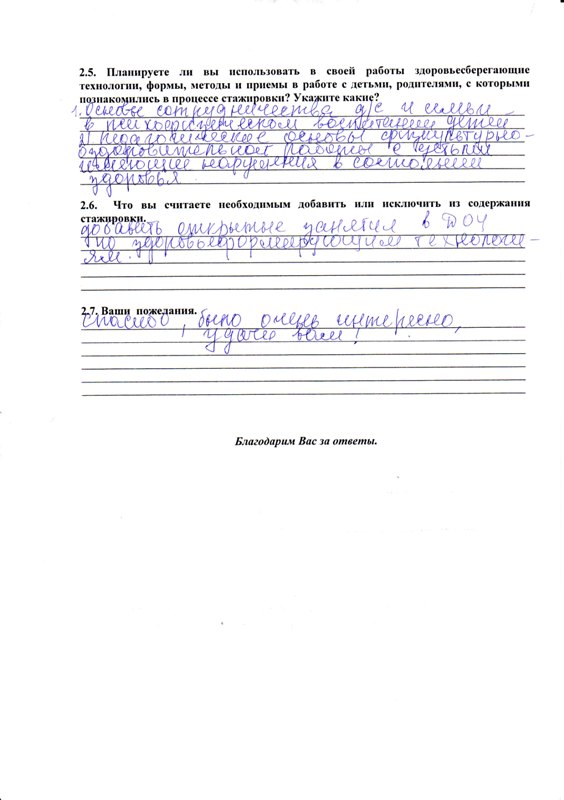 2.5. Планируете ли вы использовать в своей работы здоровьесберегающие
технологии, формы, методы и приемы в работе с детьми, родителями, с которыми
познакомились в процессе стажировки? Укажите какие?
1. Основы сотрудничества д/с и семьи
в психофизическом воспитании детей
2) Педагогические основы физкультурно-
оздоровительной работы с детьми
имеющие нарушения в состоянии
здоровья
2.6. Что вы считаете необходимым добавить или исключить из содержания
стажировки.
добавить открытые занятия в ДОУ
по здоровьеформирующим технологи-
ям.
2.7. Ваши пожелания.
Спасибо, было очень интересно,
удачи вам!
Благодарим Вас за ответы.